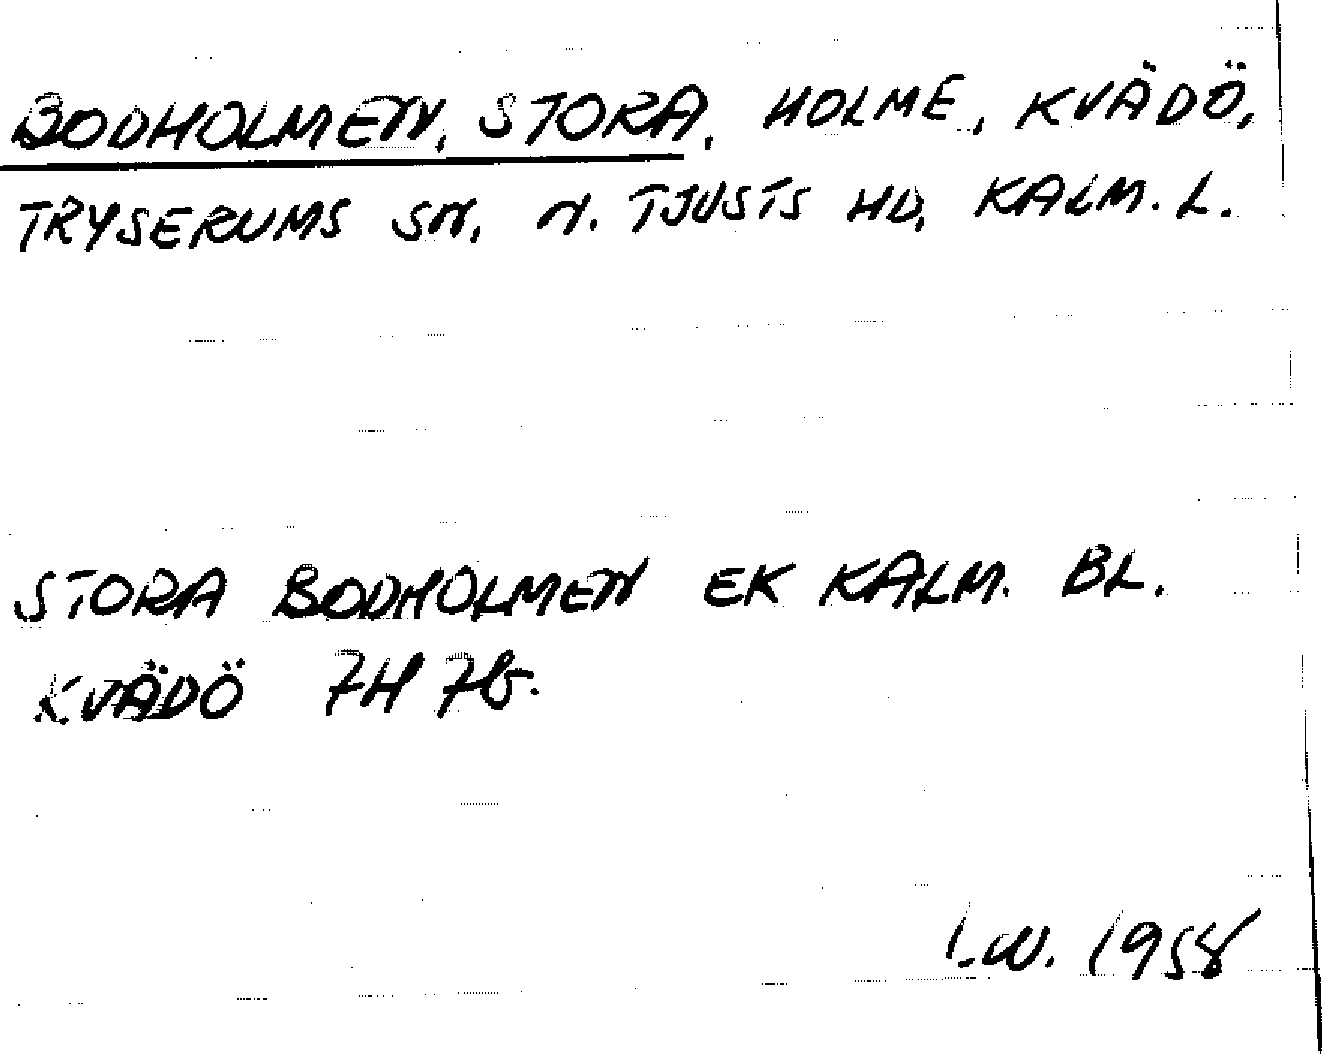 BODHOLMEN, STORA, HOLME, KVÄDÖ,
TRYSERUMS SN, N. TJUSTS HD, KALM. L.
STORA BODHOLMEN EK KALM. BL.
KVÄDÖ 7H 7b.
I.W. 1958